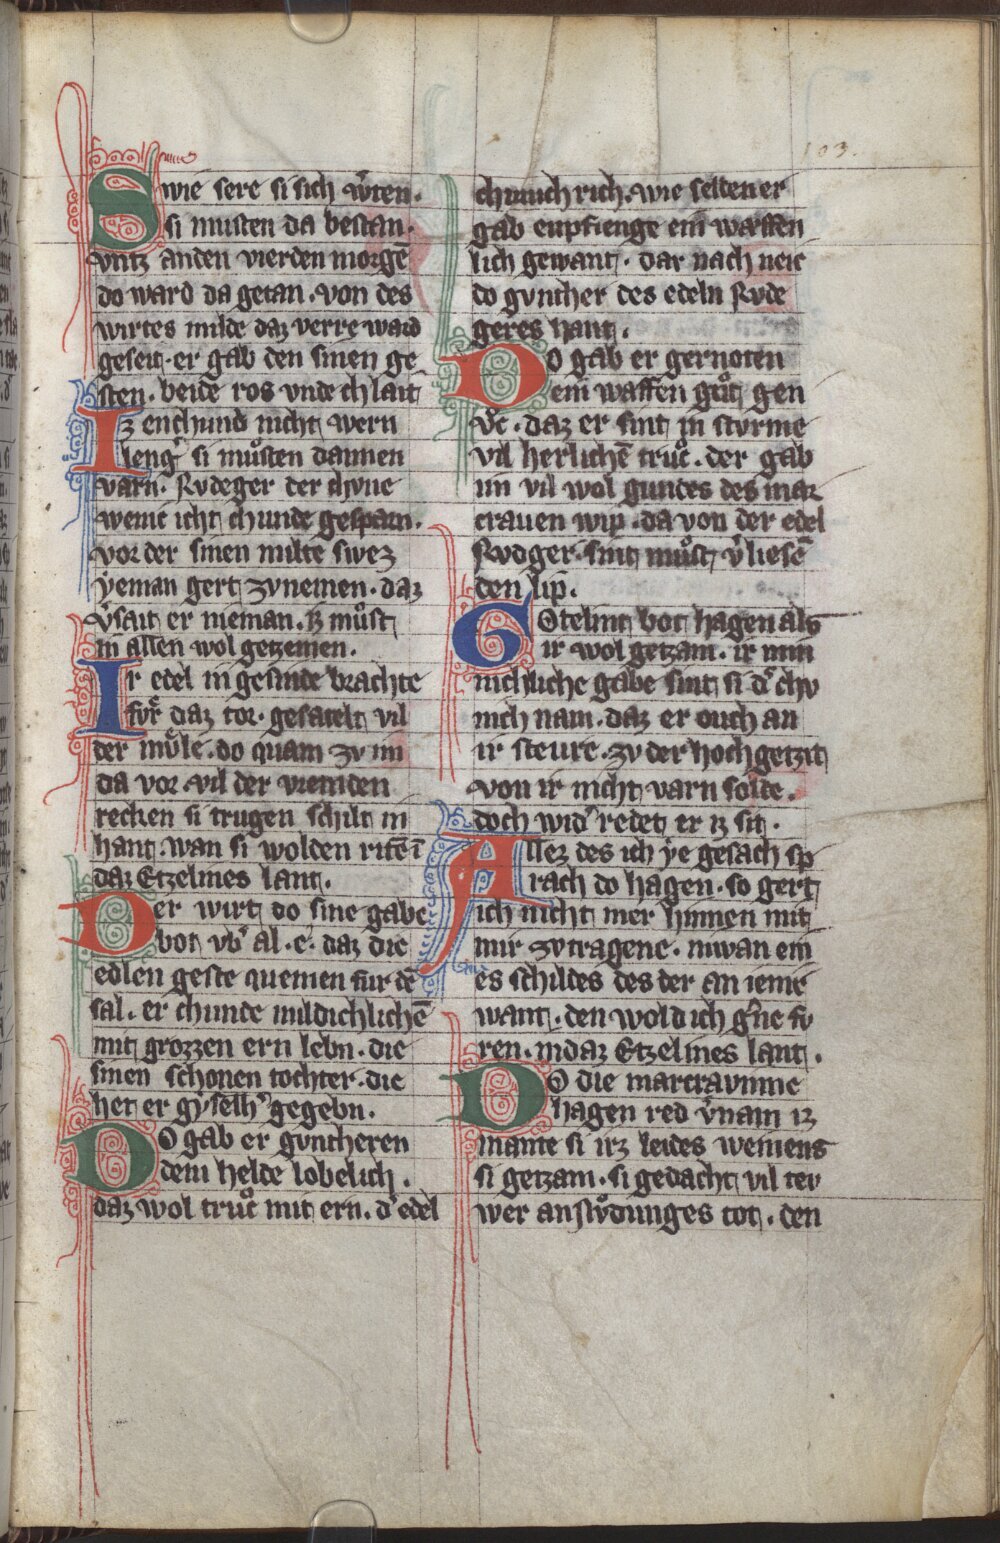 103.
Swie sere si sich w̾ren.
si musten da bestan.
vntz anden vierden morgē
do ward da getan. von des
wirtes milde daz verre ward
geseit. er gab den sinen ge
sten. beide ros vnde chlait
Iz enchund nicht wern
leng̾ si mu̾sten dannen
varn. Rvdeger der chvne
wenic icht chunde gesparn.
vor der sinen milte swez
yeman gert zvnemen. daz
v̾sait er nieman. iz mu̾st
in allen wol getzemen.
Ir edel in gesinde brachte
fvr daz tor. gesatelt vil
der mo̾le. do quam zv im
da vor vil der vremden
recken si trugen schilt in
hant wan si wolden ritē ī
daz Etzelines lant.
Der wirt do sine gabe
bot vb̾ al. e. daz die
edlen geste quemen fur dē
sal. er chunde mildichlichē
mit grozzen ern lebn. die
sinen schonen tochter. die
het er gyselh̾ gegebn.
Do gab er gvntheren
dem helde lobelich.
daz wol truͦc mit ern. d̾ edel
chunich rich. wie selten er
gab enpfienge ein waffen
lich gewant. dar nach neic
do gvnther des edeln Rvde
geres hant.
Do gab er gernoten
ein waffen guͦt gen
vͦc. daz er sint in stvrme
vil herlichē truͦc. der gab
im vil wol gundes des mar
crauen wip. da von der edel
Rvdger. sint muͦst v̾liesē
den lip.
Gotelint bot hagen als
ir wol getzam. ir min
nichliche gabe sint si d̾ chv
nich nam. daz er ouch an
ir steure. zv der hochgetzit
von ir nicht varn solde.
doch wid̾ redet er iz sit.
Allez des ich ye gesach sp
rach do hagen. so gert
ich nicht mer hinnen mit
mir zvtragene. niwan ein
es schildes des der an iene
want. den wold ich g̾ne fv
ren. indaz Etzelines lant.
Do die marcravinne
hagen red v̾nam iz
mante si irz leides weinens
si getzam. si gedacht vil tev
wer an sivdunges tot. den